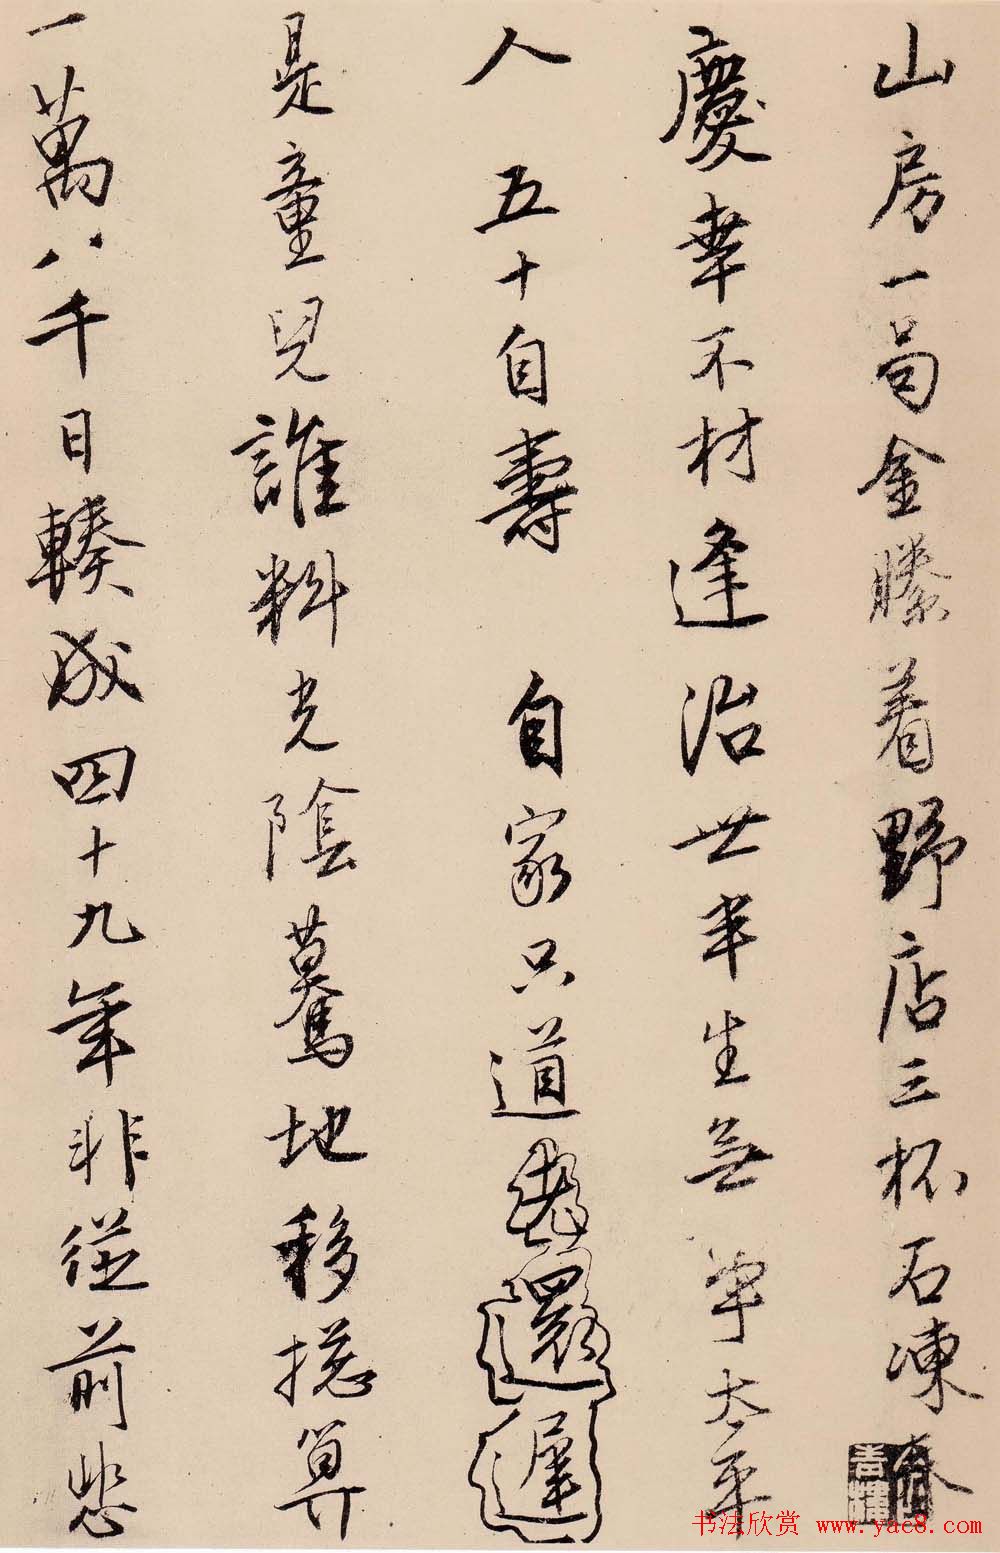 山房一局金縢着野店三杯石凍春
慶幸不材逢治世半生無事太平
人 五十自壽 自家只道老還遲
是童兒誰料光陰驀地移捴算
一萬八千日輳成四十九年非從前悲
书法欣赏 www.yac8.com